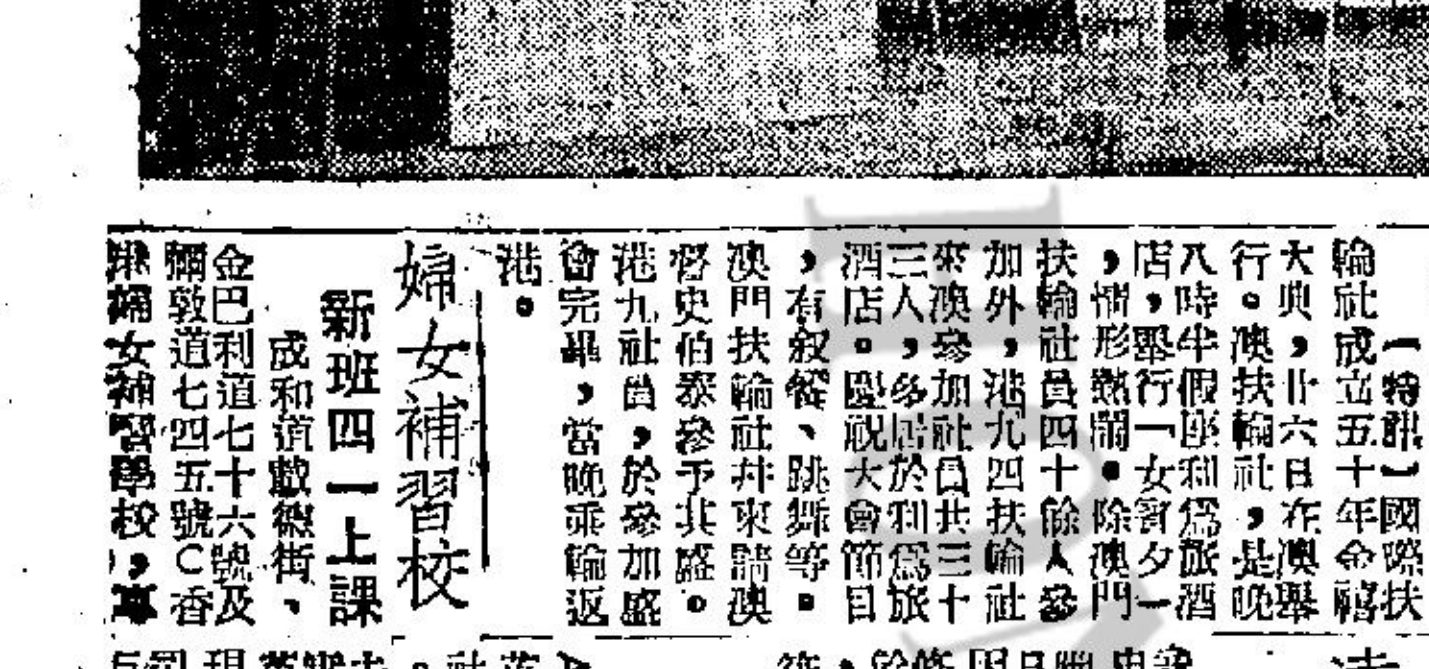 【特訊】國際扶
輪社成立五十年金禧
大典，廿六日在澳舉
行。澳扶輪社，是晚
八時半假座利爲旅酒
店，舉行「女賓夕」
，情形熱鬧。除澳門
扶輪社員四十餘人參
加外，港九四扶輪社
來澳參加社員共三十
三人，多居於利爲旅
酒店。慶祝大會節目
，有叙餐、跳舞等。
澳門扶輪社幷柬請澳
督史伯泰參予其盛。
港九社員，於參加盛
會完畢，當晚乘輪返
港。
婦女補習校
新班四一上課
成和道毓德街、
金巴利道七十六號及
彌敦道七四五號C香
港婦女補習學校，專